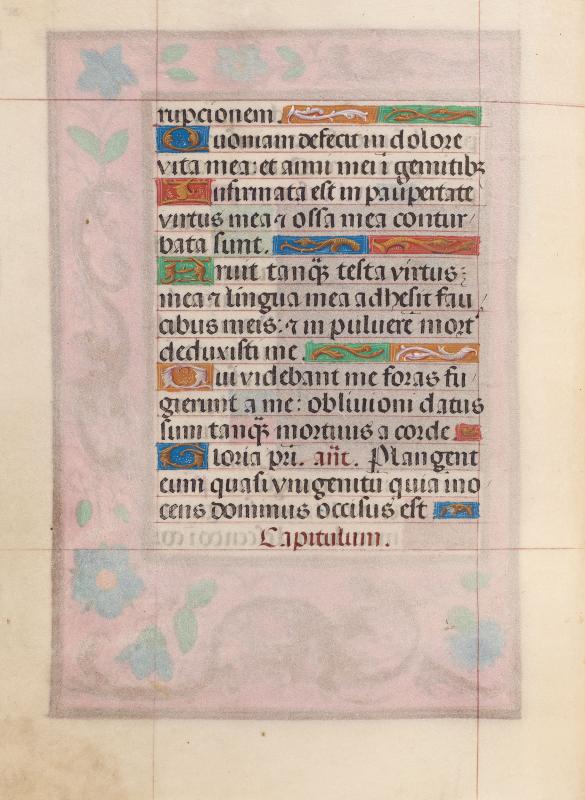 rupcionem.
Quoniam defecit in dolore
vita mea: et anni mei i gemitibꝫ
Infirmata est in paupertate
virtus mea ⁊ ossa mea contur/
bata sunt.
Aruit tanqꝫ testa virtus:
mea ⁊ lingua mea adhesit fau/
cibus meis: ⁊ in puluere mort̉
deduxisti me.
Qui videbant me foras fu/
gierunt a me: obliuioni datus
sum tanqꝫ mortuus a corde
Gloria pri. ant̄. Plangent
eum quasi vnigenitū quia ino
cens dominus occisus est
Capitulum.